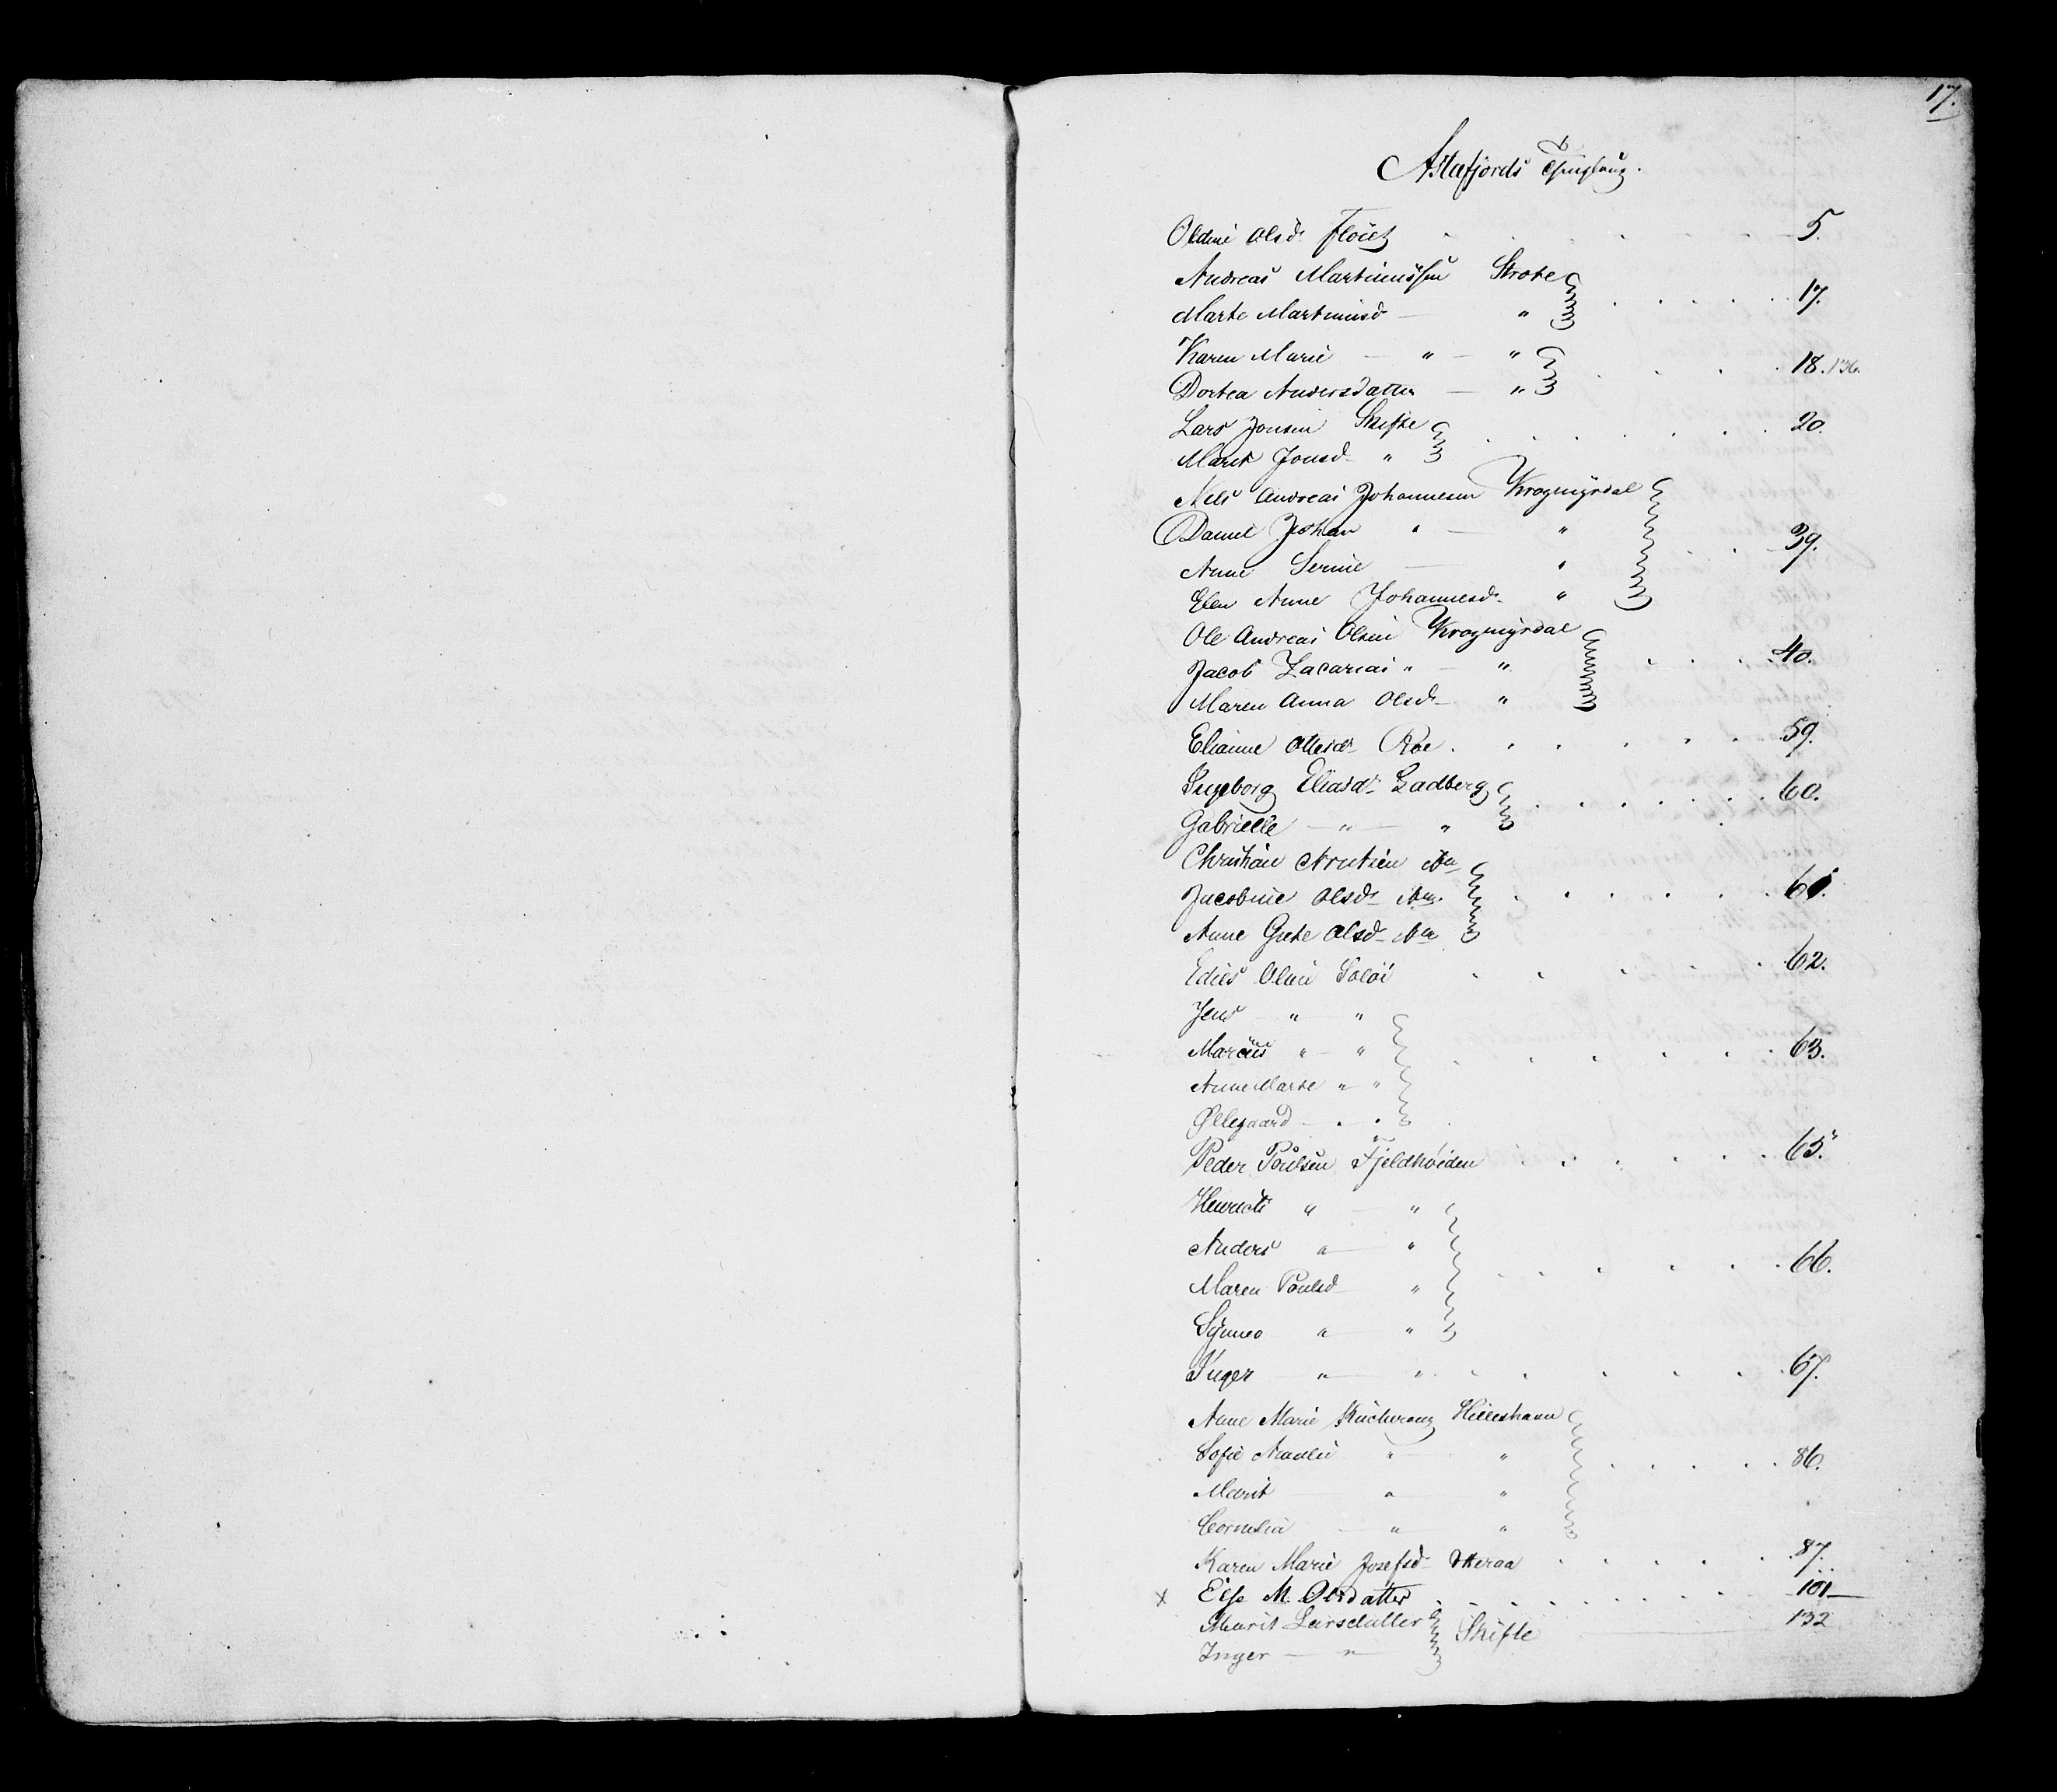 17.
Astafjords Thinglaug.
Oldine Olsd. Fløiet 5.
Andreas Martinussen Strote
Marte Martinusd — " 17.
Karen Marie — " — "
Dortea Andersdatter — " 18. 136.
Lars Jonsen Skifte 20.
Marit Jonsd — "
Nels Andreas Johannesen Krogmyrdal
Daniel Johan " — " 39.
Anne Serine — "
Elen Anne Johannesd. "
Ole Andreas Olsen Krogmyrdal
Jacob Zacarias " — " 40.
Maren Anna Olsd — "
Elianne Ottesd — Roe 59.
Ingeborg Eliasd — Gadberg 60.
Gabrielle — " — "
Christian Arntsen Aa
Jacobine Olsd — Aa 61.
Anne Grete Olsd — Aa
Edies Olsen Soløi 62.
Jens — " "
Marcus " — " 63.
Anne Marte " — "
Øllegaard — " "
Peder Poulsen Fjeldhøiden 65.
Henrich " — "
Anders " — "
Maren Poulsd — " 66.
Synneo " — "
Inger — " — " 67.
Anne Marie Hilleshavn
Sofie Amalie " — " 86.
Marit — " — "
Cornelia — " — "
Karen Marie Josefsd — Etteraa 87.
x Else M. Olsdatter 101
Marit Larsdatter Skifte — 132
Inger — " —